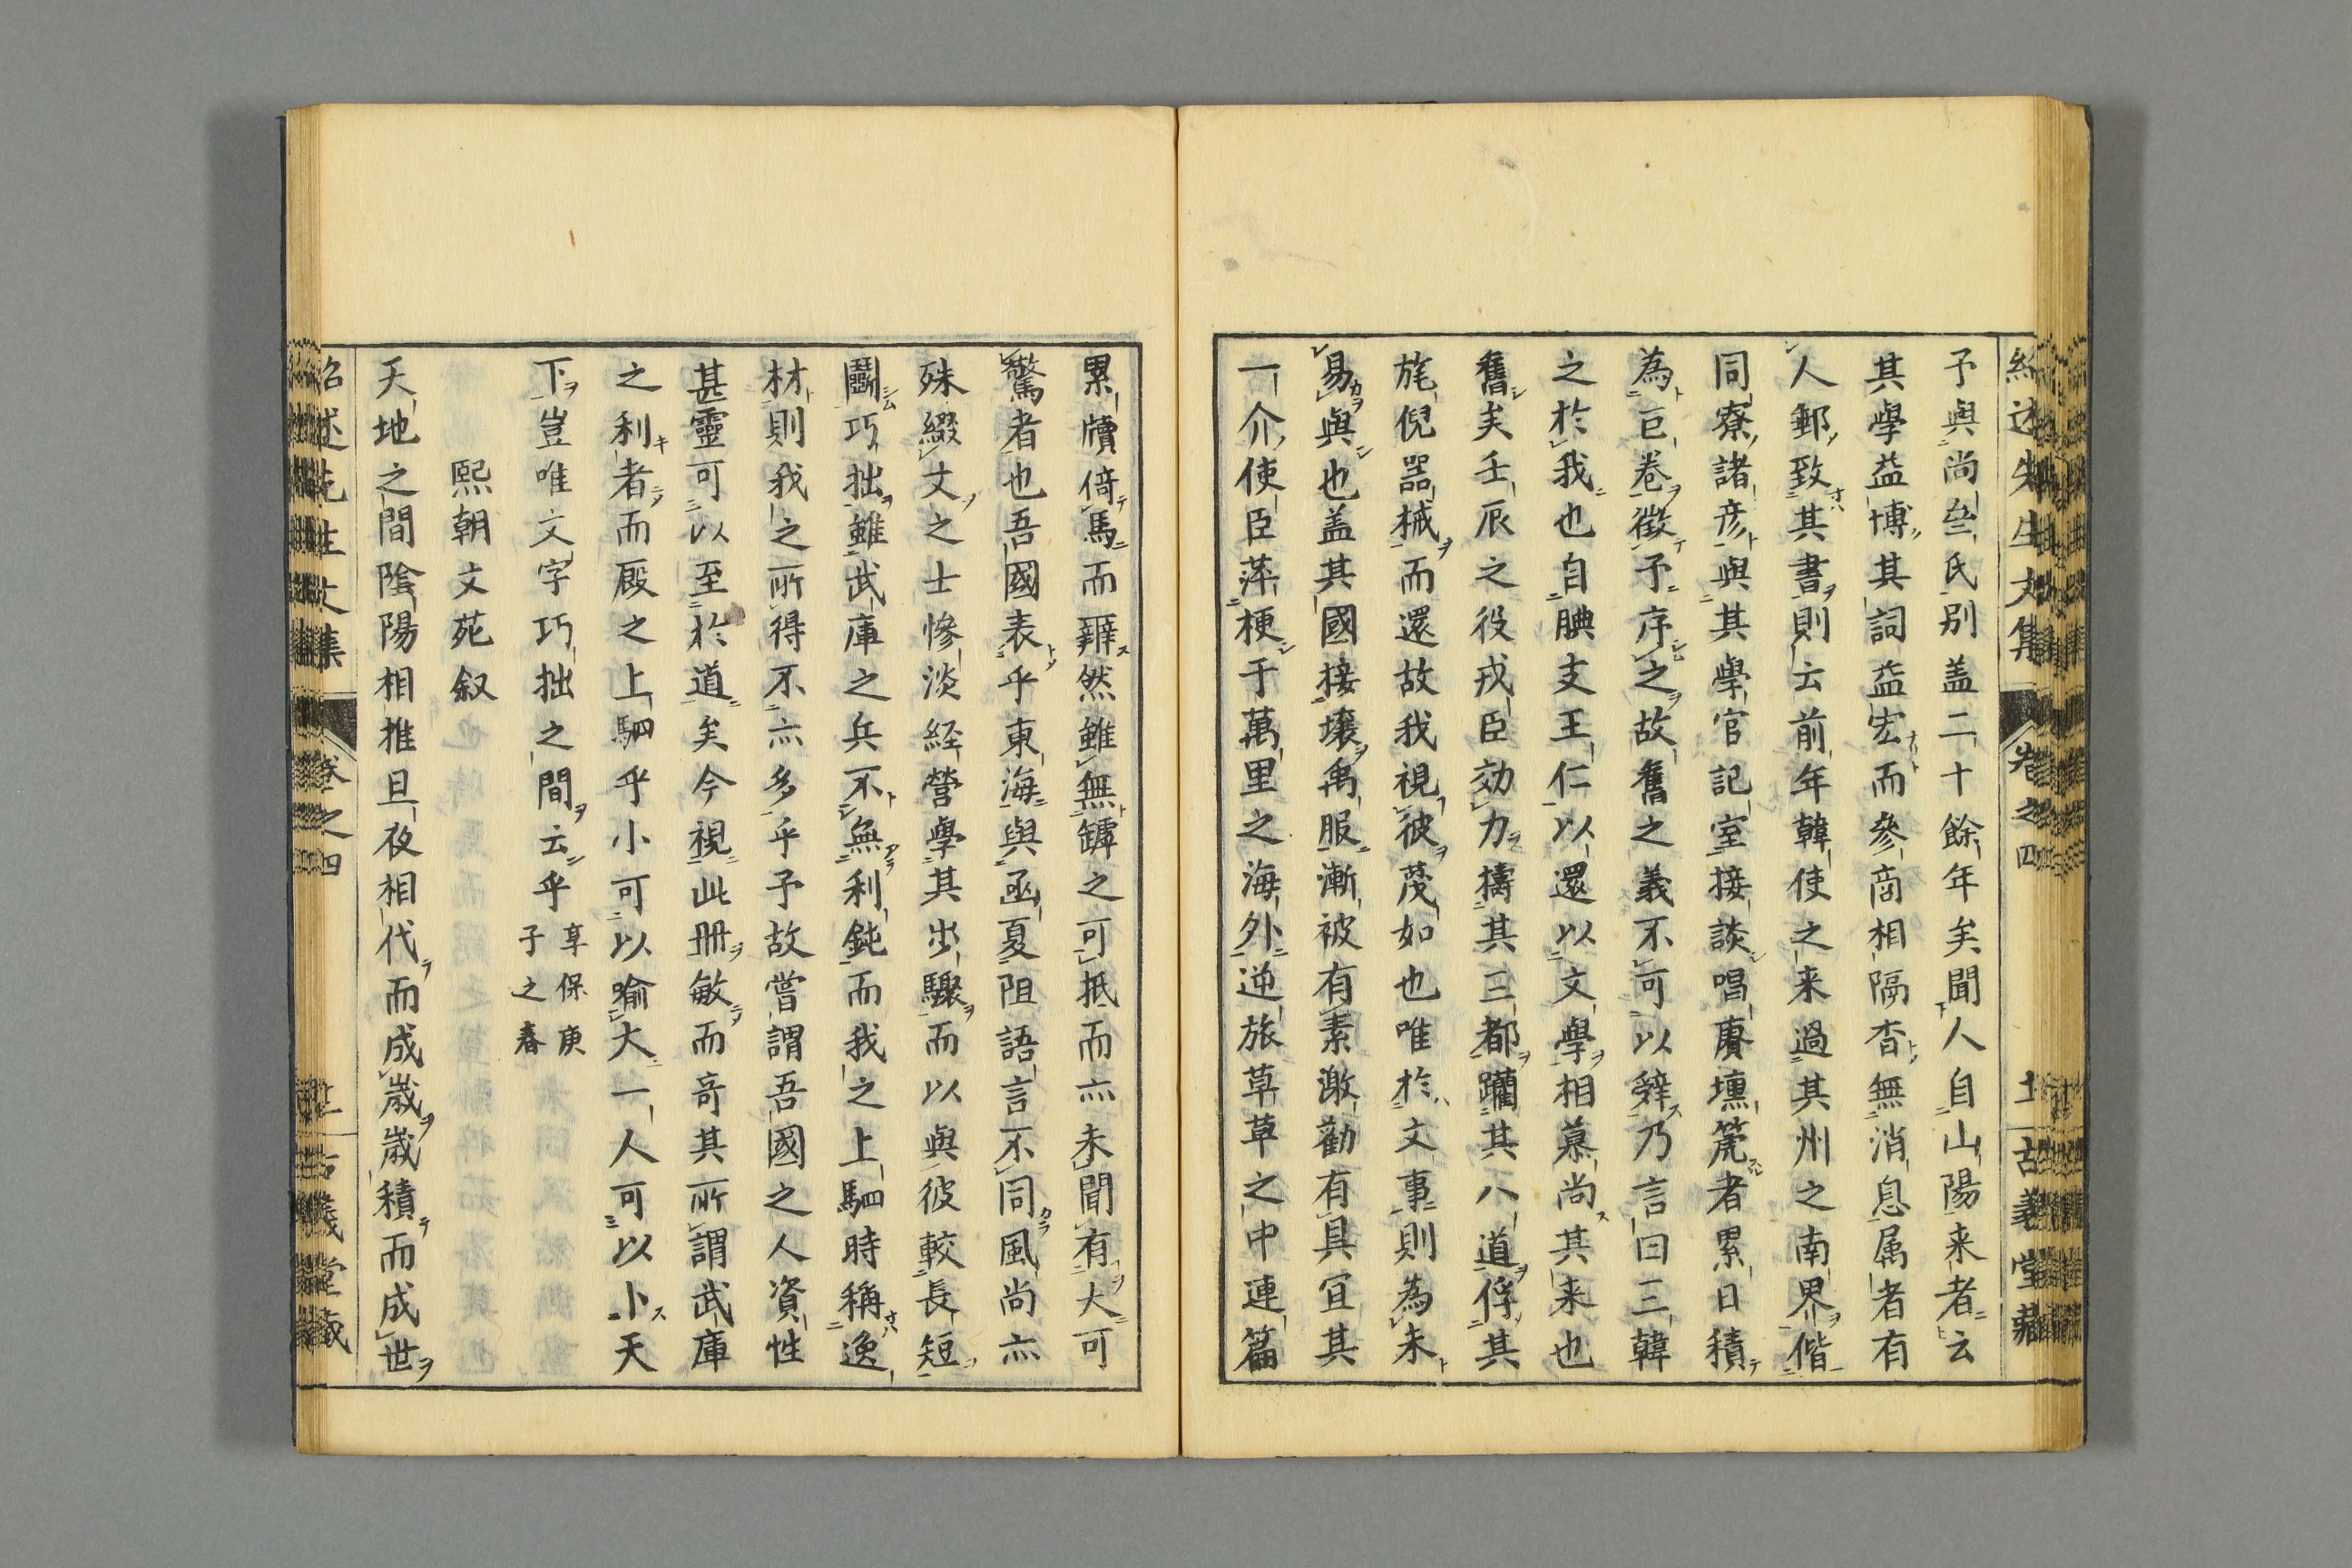 紹述先生文集 卷之四 十一 古義堂藏
予與尚氏別盖二十餘年矣聞人自山陽来者云
其學益博其詞益宏而參商相隔杳無消息属者有
人郵致其書則云前年韓使之来過其州之南界偕
同寮諸彦與其學官記室接談唱賡壎篪者累日積
為巨卷徵予序之故舊之義不可以辤乃言曰三韓
之於我也自腆支王仁以還以文學相慕尚其来也
舊矣壬辰之役戎臣効力擣其三都躪其八道俘其
旄倪器械而還故我視彼蔑如也唯於文事則為未
易與也盖其國接壤禹服漸被有素激勸有具宜其
一介使臣萍梗于萬里之海外逆旅草草之中連篇
累牘倚馬而辦然雖無罅之可抵而亦未聞有大可
驚者也吾國表乎東海與函夏阻語言不同風尚亦
殊綴文之士慘淡経營學其步驟而以與彼較長短
鬭巧拙雖武庫之兵不無利鈍而我之上駟時稱逸
材則我之所得不亦多乎予故嘗謂吾國之人資性
甚靈可以至於道矣今視此冊敏而竒其所謂武庫
之利者而殿之上駟乎小可以喻大一人可以卜天
下豈唯文字巧拙之間云乎 享保庚子之春
熙朝文苑叙
天地之間陰陽相推旦夜相代而成歲歲積而成世
紹述先生文集 卷之四 古義堂藏